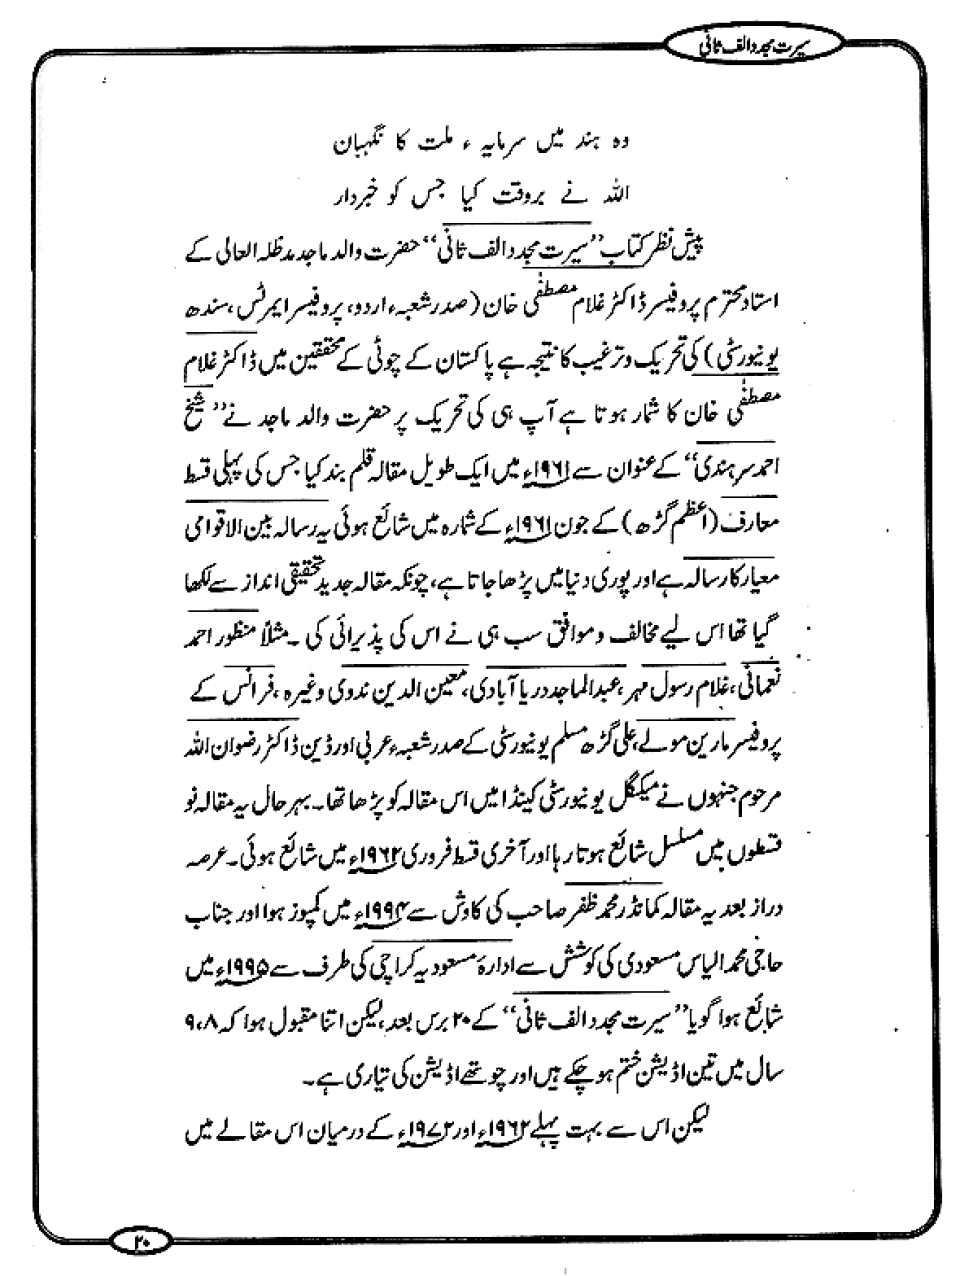 سیرت مجدد الف ثانی
وہ ہند میں سرمایہ ء ملت کا نگہبان
اللہ نے بروقت کیا جس کو خبردار
پیش نظر کتاب ”سیرت مجدد الف ثانی“ حضرت والد ماجد مدظلہ العالی کے
استاد محترم پروفیسر ڈاکٹر غلام مصطفٰی خان (صدر شعبہ ء اردو، پروفیسر ایمرٹس، سندھ
یونیورسٹی) کی تحریک و ترغیب کا نتیجہ ہے پاکستان کے چوٹی کے محققین میں ڈاکٹر غلام
مصطفٰی خان کا شمار ہوتا ہے آپ ہی کی تحریک پر حضرت والد ماجد نے ”شیخ
احمد سرہندی“ کے عنوان سے ۱۹۶۱ء میں ایک طویل مقالہ قلم بند کیا جس کی پہلی قسط
معارف (اعظم گڑھ) کے جون ۱۹۶۱ء کے شمارہ میں شائع ہوئی یہ رسالہ بین الاقوامی
معیار کا رسالہ ہے اور پوری دنیا میں پڑھا جاتا ہے، چونکہ مقالہ جدید تحقیقی انداز سے لکھا
گیا تھا اس لیے مخالف و موافق سب ہی نے اس کی پذیرائی کی ۔ مثلاً منظور احمد
نعمانی، غلام رسول مہر، عبدالماجد دریا آبادی، معین الدین ندوی وغیرہ، فرانس کے
پروفیسر مارین مولے، علی گڑھ مسلم یونیورسٹی کے صدر شعبہ ء عربی اور ڈین ڈاکٹر رضوان اللہ
مرحوم جنہوں نے میکگل یونیورسٹی کینڈا میں اس مقالہ کو پڑھا تھا۔ بہر حال یہ مقالہ نو
قسطوں میں مسلسل شائع ہوتا رہا اور آخری قسط فروری ۱۹۶۲ء میں شائع ہوئی۔ عرصہ
دراز بعد یہ مقالہ کمانڈر محمد ظفر صاحب کی کاوش سے ۱۹۹۴ء میں کمپوز ہوا اور جناب
حاجی محمد الیاس مسعودی کی کوشش سے ادارۂ مسعودیہ کراچی کی طرف سے ۱۹۹۵ء میں
شائع ہوا گویا ”سیرت مجدد الف ثانی“ کے ۲۰ برس بعد، لیکن اتنا مقبول ہوا کہ ۹،۸
سال میں تین اڈیشن ختم ہو چکے ہیں اور چوتھے اڈیشن کی تیاری ہے۔
لیکن اس سے بہت پہلے ۱۹۶۲ء اور ۱۹۷۲ء کے درمیان اس مقالے میں
۲۰